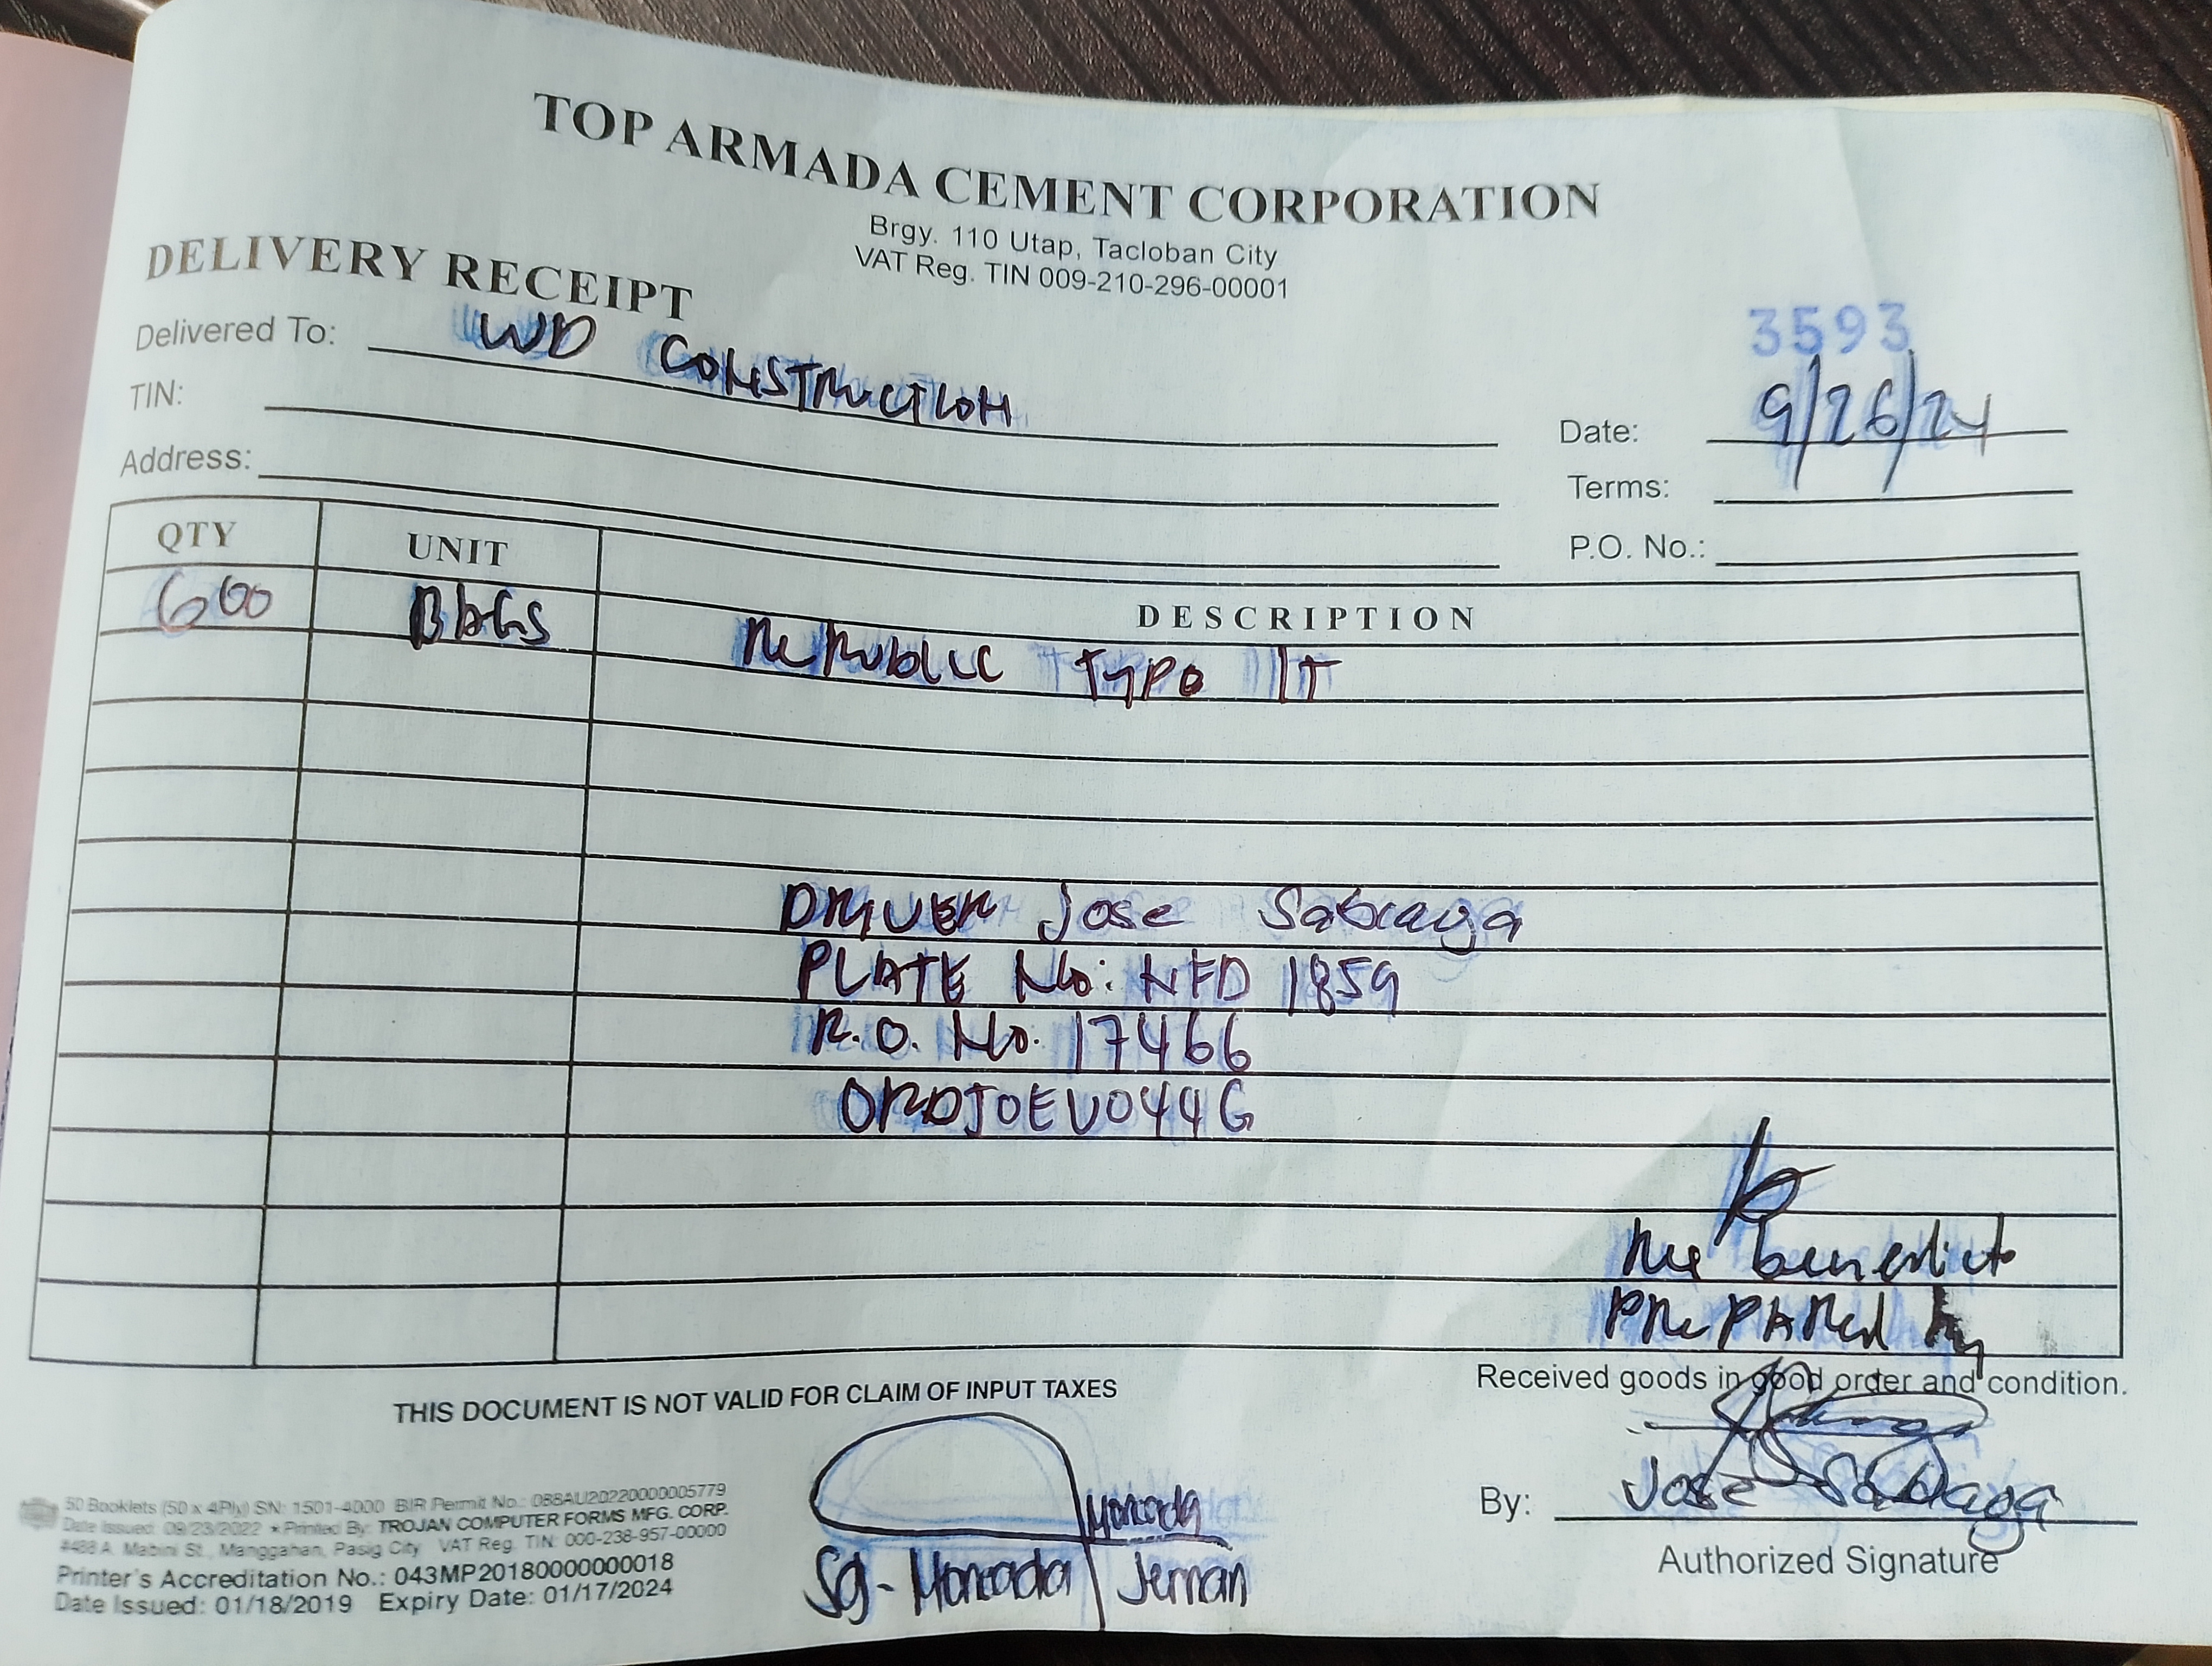 TOP ARMADA CEMENT CORPORATION
Brgy. 110 Utap, Tacloban City
VAT Reg. TIN 009-210-296-00001
DELIVERY RECEIPT
3593
Delivered To: WD CONSTRUCTION
TIN:
Address:
Date: 9/26/24
Terms:
P.O. No.:
QTY UNIT DESCRIPTION
600 BAGS Republic Type 1T
DRIVER Jose Sabraga
PLATE No: NFD 1859
R.O. No. 17466
ORDJOEV044G
benedicto
PREPARED by
Received goods in good order and condition.
By: Jose Sabraga
Authorized Signature
THIS DOCUMENT IS NOT VALID FOR CLAIM OF INPUT TAXES
Moncada
Sg- Moncada Jernan
50 Booklets (50 x 4Ply) SN: 1501-4000 BIR Permit No.: 088AU20220000005779
Date Issued: 09/23/2022 * Printed By: TROJAN COMPUTER FORMS MFG. CORP.
#488 A. Mabini St., Manggahan, Pasig City VAT Reg. TIN: 000-238-957-00000
Printer's Accreditation No.: 043MP20180000000018
Date Issued: 01/18/2019 Expiry Date: 01/17/2024